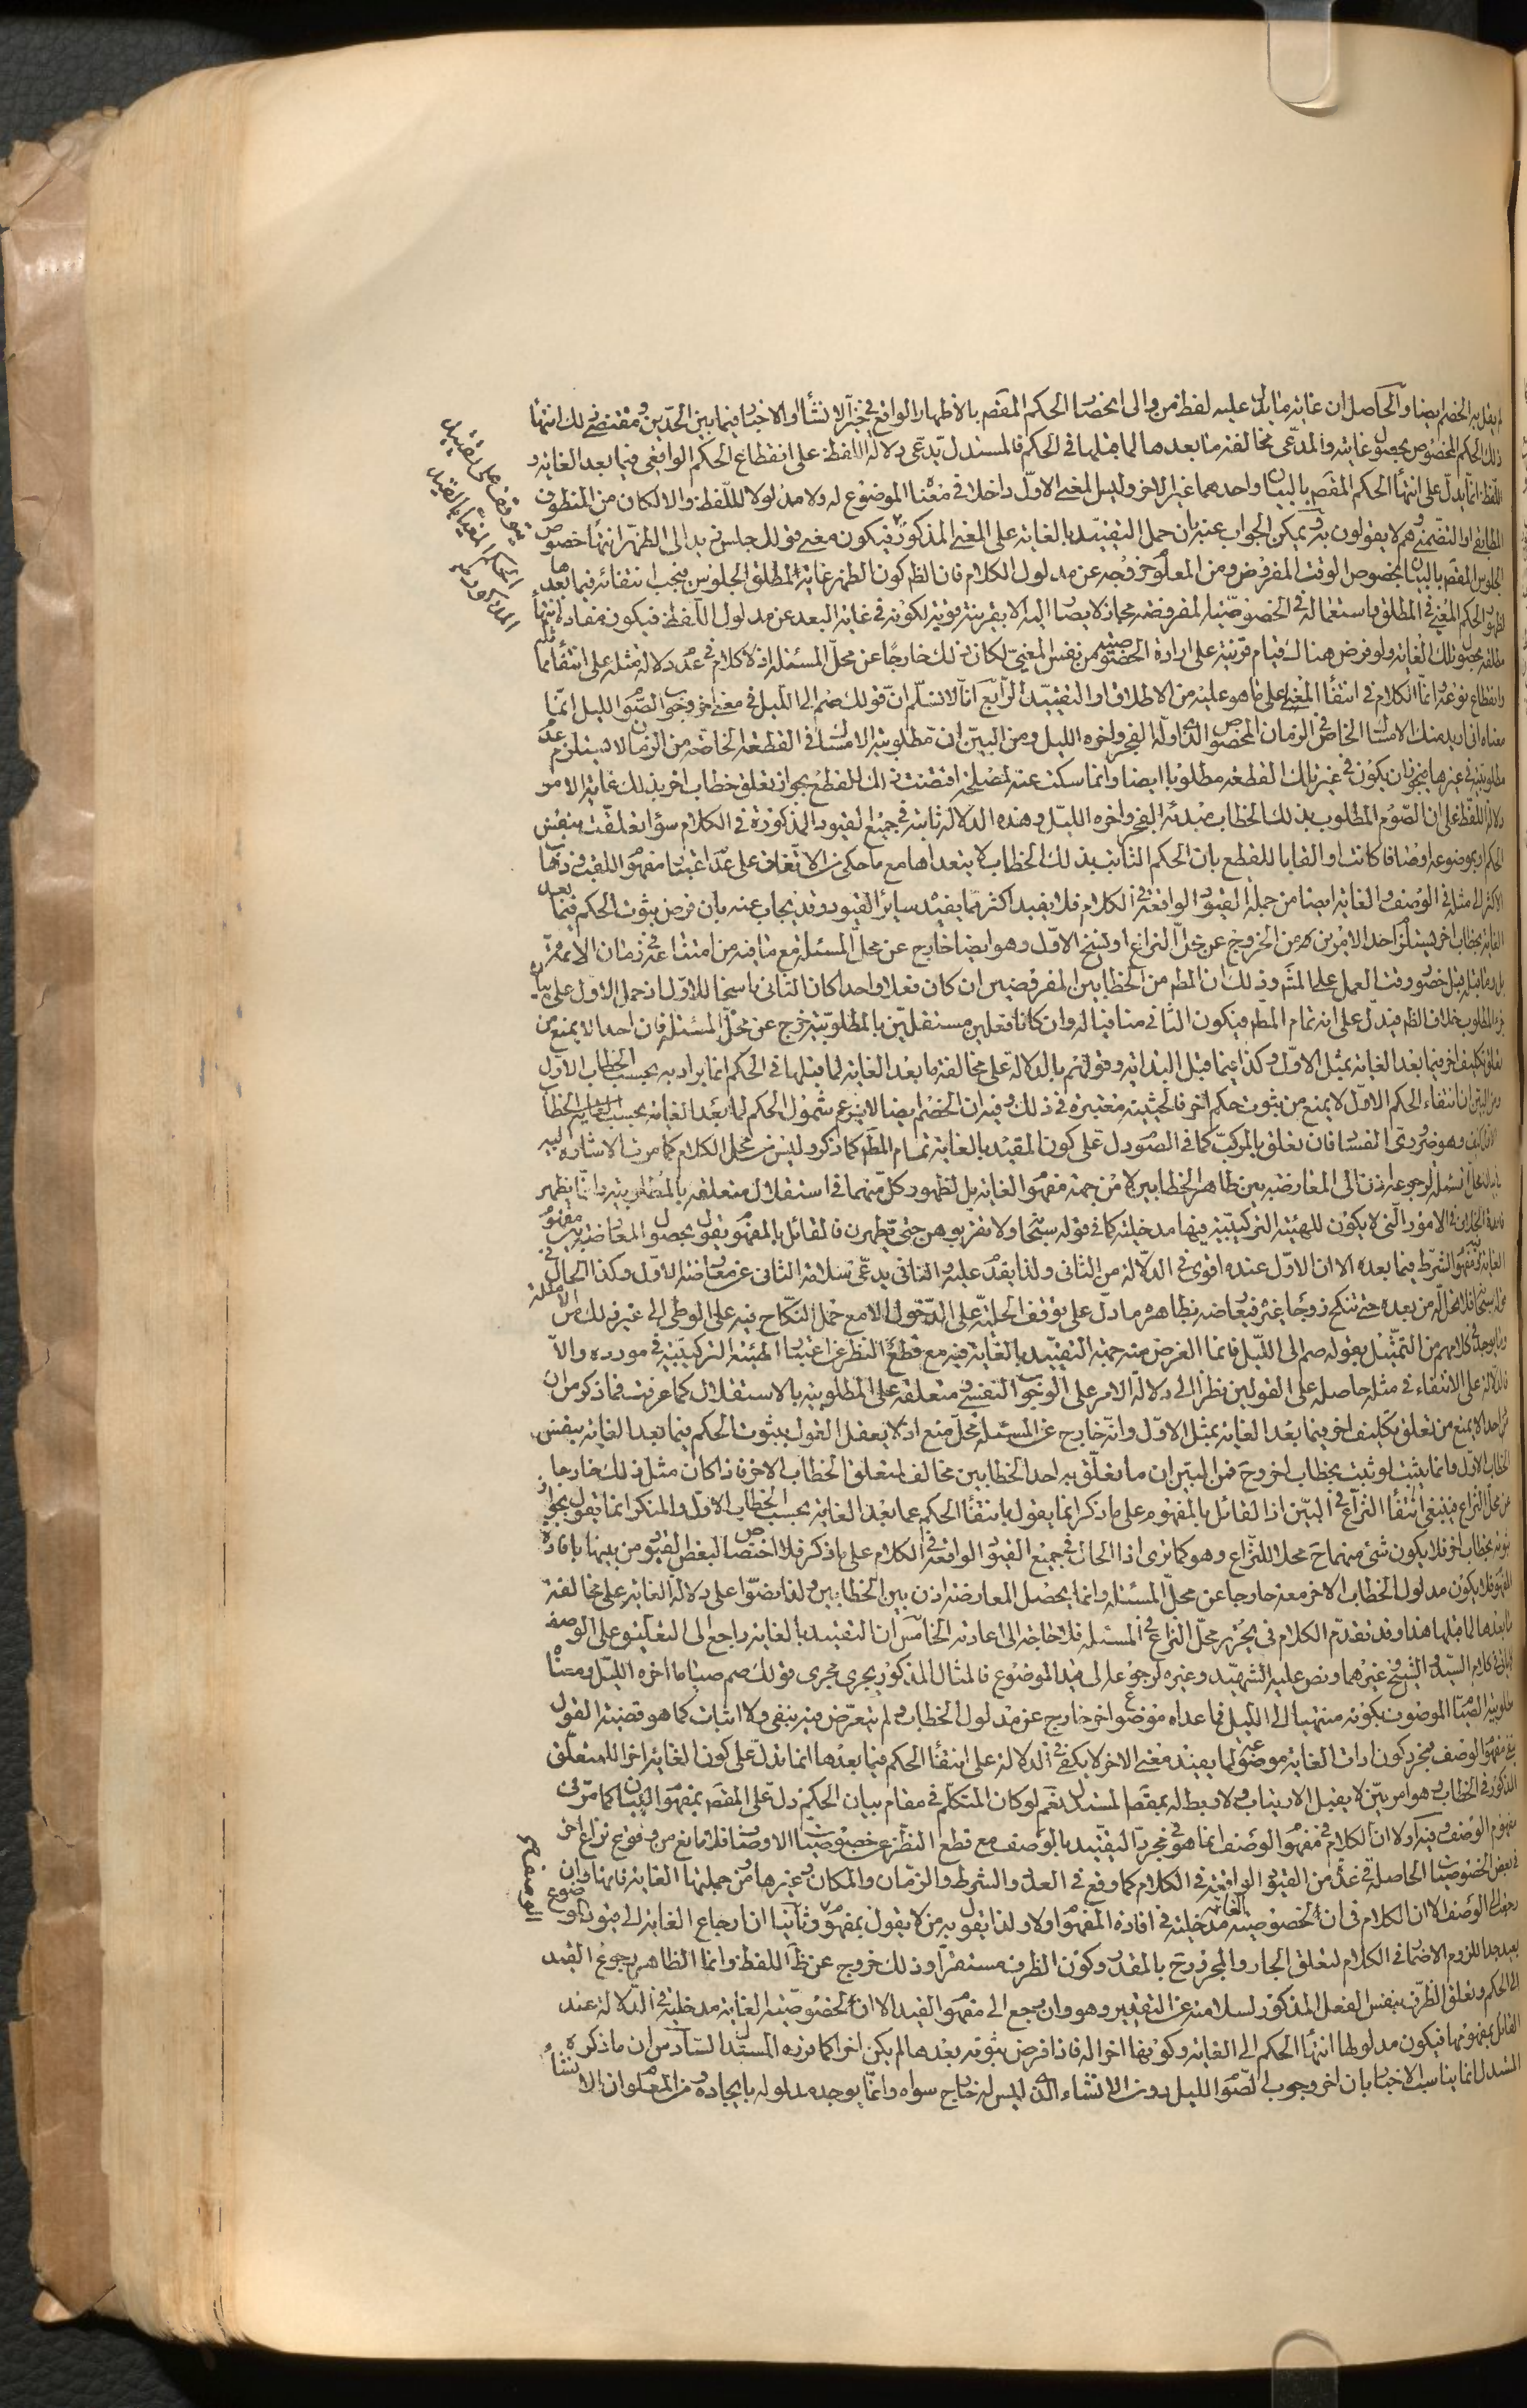 لم يقل به الخصم ايضا والحاصل ان غاية ما يدل عليه لفظة من والى انحصار الحكم المقصود بالاظهار الواقع في خبر الانشاء او الاخبار فيما بين الحدين ومقتضى ذلك انتهاء
ذلك الحكم المخصوص بحصول غايته والمدعى مخالفة ما بعدها لما قبلها في الحكم فالمستدل يدعى دلالة اللفظ على انقطاع الحكم الواقعى فيما بعد الغاية و
اللفظ انما يدل على انتهاء الحكم المقصود بالبيان واحدهما غير الاخر وليس المعنى الاول داخلا في معنا الموضوع له ولا مدلولا للفظ والا لكان من المنطوق
المطابقى او التضمنى وهم لا يقولون به ويمكن الجواب عنه بان حمل التقييد بالغاية على المعنى المذكور فيكون معنى قولك جلس زيد الى الظهر انتهاء خصوص
الجلوس المقصود بالبيان المخصوص الوقت المفروض ومن المعلوم خروجه عن مدلول الكلام فان الظاهر كون الظهر غاية لمطلق الجلوس فيجب انتفائه فيما بعدها
لظهور الحكم المغيى في المطلق واستعماله في الخصوصية المفروضة مجاز لا يصار اليه الا بقرينة قوية لكونه في غاية البعد عن مدلول اللفظ فيكون مفاده انتهاء
مطلقه بحصول تلك الغاية ولو فرض هناك قيام قرينة على ارادة الخصوصية من نفس المغيى لكان ذلك خارجا عن محل المسئلة اذ لا كلام في عدم دلالة مثله على انتفاء ما
وانقطاع نوعه وانما الكلام في انتفاء المغيى على ما هو عليه من الاطلاق او التقييد الرابع انا لا نسلم ان قولك صم الى الليل في معنى اخر وجوب الصوم الليل انما
معناه انى اريد منك الامساك الخاص في الزمان المخصوص الذى اوله الفجر واخره الليل ومن البين ان مطلوبية الامساك في القطعة الخاصة من الزمان لا يستلزم عدم
مطلوبيته في غيرها فيجوز ان يكون في غير تلك القطعة مطلوبا ايضا وانما سكت عنه لمصلحة اقتضت ذلك للقطع بجواز تعلق خطاب اخر بذلك غاية الامر
دلالة اللفظ على ان الصوم المطلوب بذلك الخطاب مبدئه الفجر واخره الليل وهذه الدلالة ثابتة في جميع القيود المذكورة في الكلام سواء تعلقت بنفس
الحكم او بموضوعه اوصافا كانت او القابا للقطع بان الحكم الثابت بذلك الخطاب لا يتعداها مع ما حكى من الاتفاق على عدم اعتبار مفهوم اللقب وذهاب
الاكثر الى مثله في الوصف والغاية ايضا من جملة القيود الواقعة في الكلام فلا يفيد اكثر مما يفيده ساير القيود وقد يجاب عنه بان فرض ثبوت الحكم فيما بعد
الغاية بخطاب اخر يستلزم احد الامرين من الخروج عن محل النزاع او نسخ الاول وهو ايضا خارج عن محل المسئلة مع ما فيه من امتناعه في زمان الائمة
قبل حضور وقت العمل على المشهور وذلك ان المطلوب من الخطابين المفروضين ان كان فعلا واحدا كان الثانى ناسخا للاول اذ حمل الاول على بيان
جزء المطلوب خلاف الظاهر فيدل على انه تمام المطلوب فيكون الثانى منافيا له وان كانا فعلين مستقلين بالمطلوبية خرج عن محل المسئلة فان احدا لا يمنع من
تعلق تكليف اخر فيما بعد الغاية بمثل الاول وكذا فيما قبل البداية وقولهم بالدلالة على مخالفة ما بعد الغاية لما قبلها في الحكم انما يراد به بحسب الخطاب الاول
ومن البين ان انتفاء الحكم الاول لا يمنع من ثبوت حكم اخر فالحيثية معتبرة في ذلك وفيه ان الخصم ايضا لا يزعم شمول الحكم لما بعد الغاية بحسب الخطاب
وهو ضرورى الفساد فان تعلق بالمركب كما في الصوم دل على كون المقيد بالغاية تمام المطلوب كما ذكر وليس من محل الكلام كما مرت الاشارة اليه
المسئلة لرجوعه اذن الى المعارضة بين ظاهر الخطابين لا من جهة مفهوم الغاية بل لظهور كل منهما في استقلال متعلقه بالمطلوبية وانما يظهر
فائدة الخلاف في الامور التى لا يكون للهيئة التركيبية فيها مدخلية كما في قوله سبحانه ولا تقربوهن حتى يطهرن فالقائل بالمفهوم يقول بحصول المعارضة بين مفهوم
الغاية ومفهوم الشرط فيما بعده الا ان الاول عنده اقوى في الدلالة من الثانى ولذا يقدم عليه والثانى يدعى سلامة الثانى عن معارضة الاول وكذا الحال في
قوله سبحانه فلا تحل له من بعد حتى تنكح زوجا غيره فيعارضه بظاهره ما دل على توقف الحلية على الدخول الا مع حمل النكاح فيه على الوطى الى غير ذلك من الامثلة
وما يوجد في كلامهم من التمثيل بقوله صم الى الليل فانما الغرض منه جهة التقييد بالغاية فيه مع قطع النظر عن اعتبار الهيئة التركيبية في مورده والا
فالدلالة على الانتفاء في مثله حاصلة على القولين نظرا الى دلالة الامر على الوجوب النفسى ومتعلقه على المطلوبية بالاستقلال كما عرفت فما ذكر من ان
احدا لا يمنع من تعلق تكليف اخر فيما بعد الغاية بمثل الاول وانه خارج عن المسئلة محل منع اذ لا يعقل القول بثبوت الحكم فيما بعد الغاية بنفس
الخطاب الاول وانما يثبت لو ثبت بخطاب اخر وح فمن البين ان ما تعلق به احد الخطابين مخالف لمتعلق الخطاب الاخر فاذا كان مثل ذلك خارجا
عن محل النزاع فينبغى انتفاء النزاع في البين اذ القائل بالمفهوم على ما ذكر انما يقول بانتفاء الحكم عما بعد الغاية بحسب الخطاب الاول والمنكر انما يقول بجواز
ثبوته بخطاب اخر فلا يكون شئ منهما ح محلا للنزاع وهو كما ترى اذا الحال في جميع القيود الواقعة في الكلام على ما ذكر فلا اختصاص لبعض القيود من بينها بافادة
المفهوم فلا يكون مدلول الخطاب الاخر معه خارجا عن محل المسئلة وانما يحصل المعارضة اذن بين الخطابين ولذا نصوا على دلالة الغاية على مخالفة
ما بعدها لما قبلها هذا وقد تقدم الكلام في تحرير محل النزاع في المسئلة فلا حاجة الى اعادته الخامس ان التقييد بالغاية راجع الى التعليق على الوصف
كما في كلام السيد والشيخ وغيرهما ونص عليه الشهيد وغيره لرجوعه الى قيد الموضوع فالمثال المذكور يجرى مجرى قولك صم صياما اخره الليل ومعنا
مطلوبية الصيام الموصوف بكونه منتهيا الى الليل فما عداه موضوع اخر خارج عن مدلول الخطاب لم يتعرض فيه بنفى ولا اثبات كما هو قضية القول
بنفى مفهوم الوصف فمجرد كون ادات الغاية موضوعة لما يفيد معنى الاخر لا يكفى في الدلالة على انتفاء الحكم فيما بعدها انما تدل على كون الغاية اخرا للمتعلق
المذكور في الخطاب وهو امر بين لا يقبل الارتياب ولا ربط له بمقصود المستدل نعم لو كان المتكلم في مقام بيان الحكم دل على المقصود بمفهوم البيان كما مر في
مفهوم الوصف وفيه اولا ان الكلام في مفهوم الوصف انما هو في مجرد التقييد بالوصف مع قطع النظر عن خصوصيات الاوصاف فلا مانع من وقوع نزاع اخر
في بعض الخصوصيات الحاصلة في غيره من القيود الواقعة في الكلام كما وقع في العدد والشرط والزمان والمكان وغيرها ومن جملتها الغاية فانها وان
رجعت الى الوصف الا ان الكلام في ان لخصوصية الغاية مدخلية في افادة المفهوم اولا ولذا يقول به من لا يقول بمفهوم الوصف وثانيا ان ارجاع الغاية الى الموضوع
بعيد جدا للزوم الاضمار في الكلام لتعلق الجار والمجرور ح بالمقدر وكون الظرف مستقرا وذلك خروج عن ظاهر اللفظ وانما الظاهر رجوع القيد
الى الحكم وتعلق الظرف بنفس الفعل المذكور لسلامته عن التقدير وهو وان رجع الى مفهوم القيد الا ان لخصوصية الغاية مدخلية في الدلالة عند
القائل بمفهومها فيكون مدلولها انتهاء الحكم الى الغاية وكونها اخرا له فاذا فرض ثبوته بعدها لم يكن اخرا كما قرره المستدل السادس ان ما ذكره
المستدل انما يناسب الاخبار بان اخر وجوب الصوم الليل دون الانشاء الذى ليس له خارج سواه وانما يوجد مدلوله بايجاده ومن المعلوم ان الانشاء